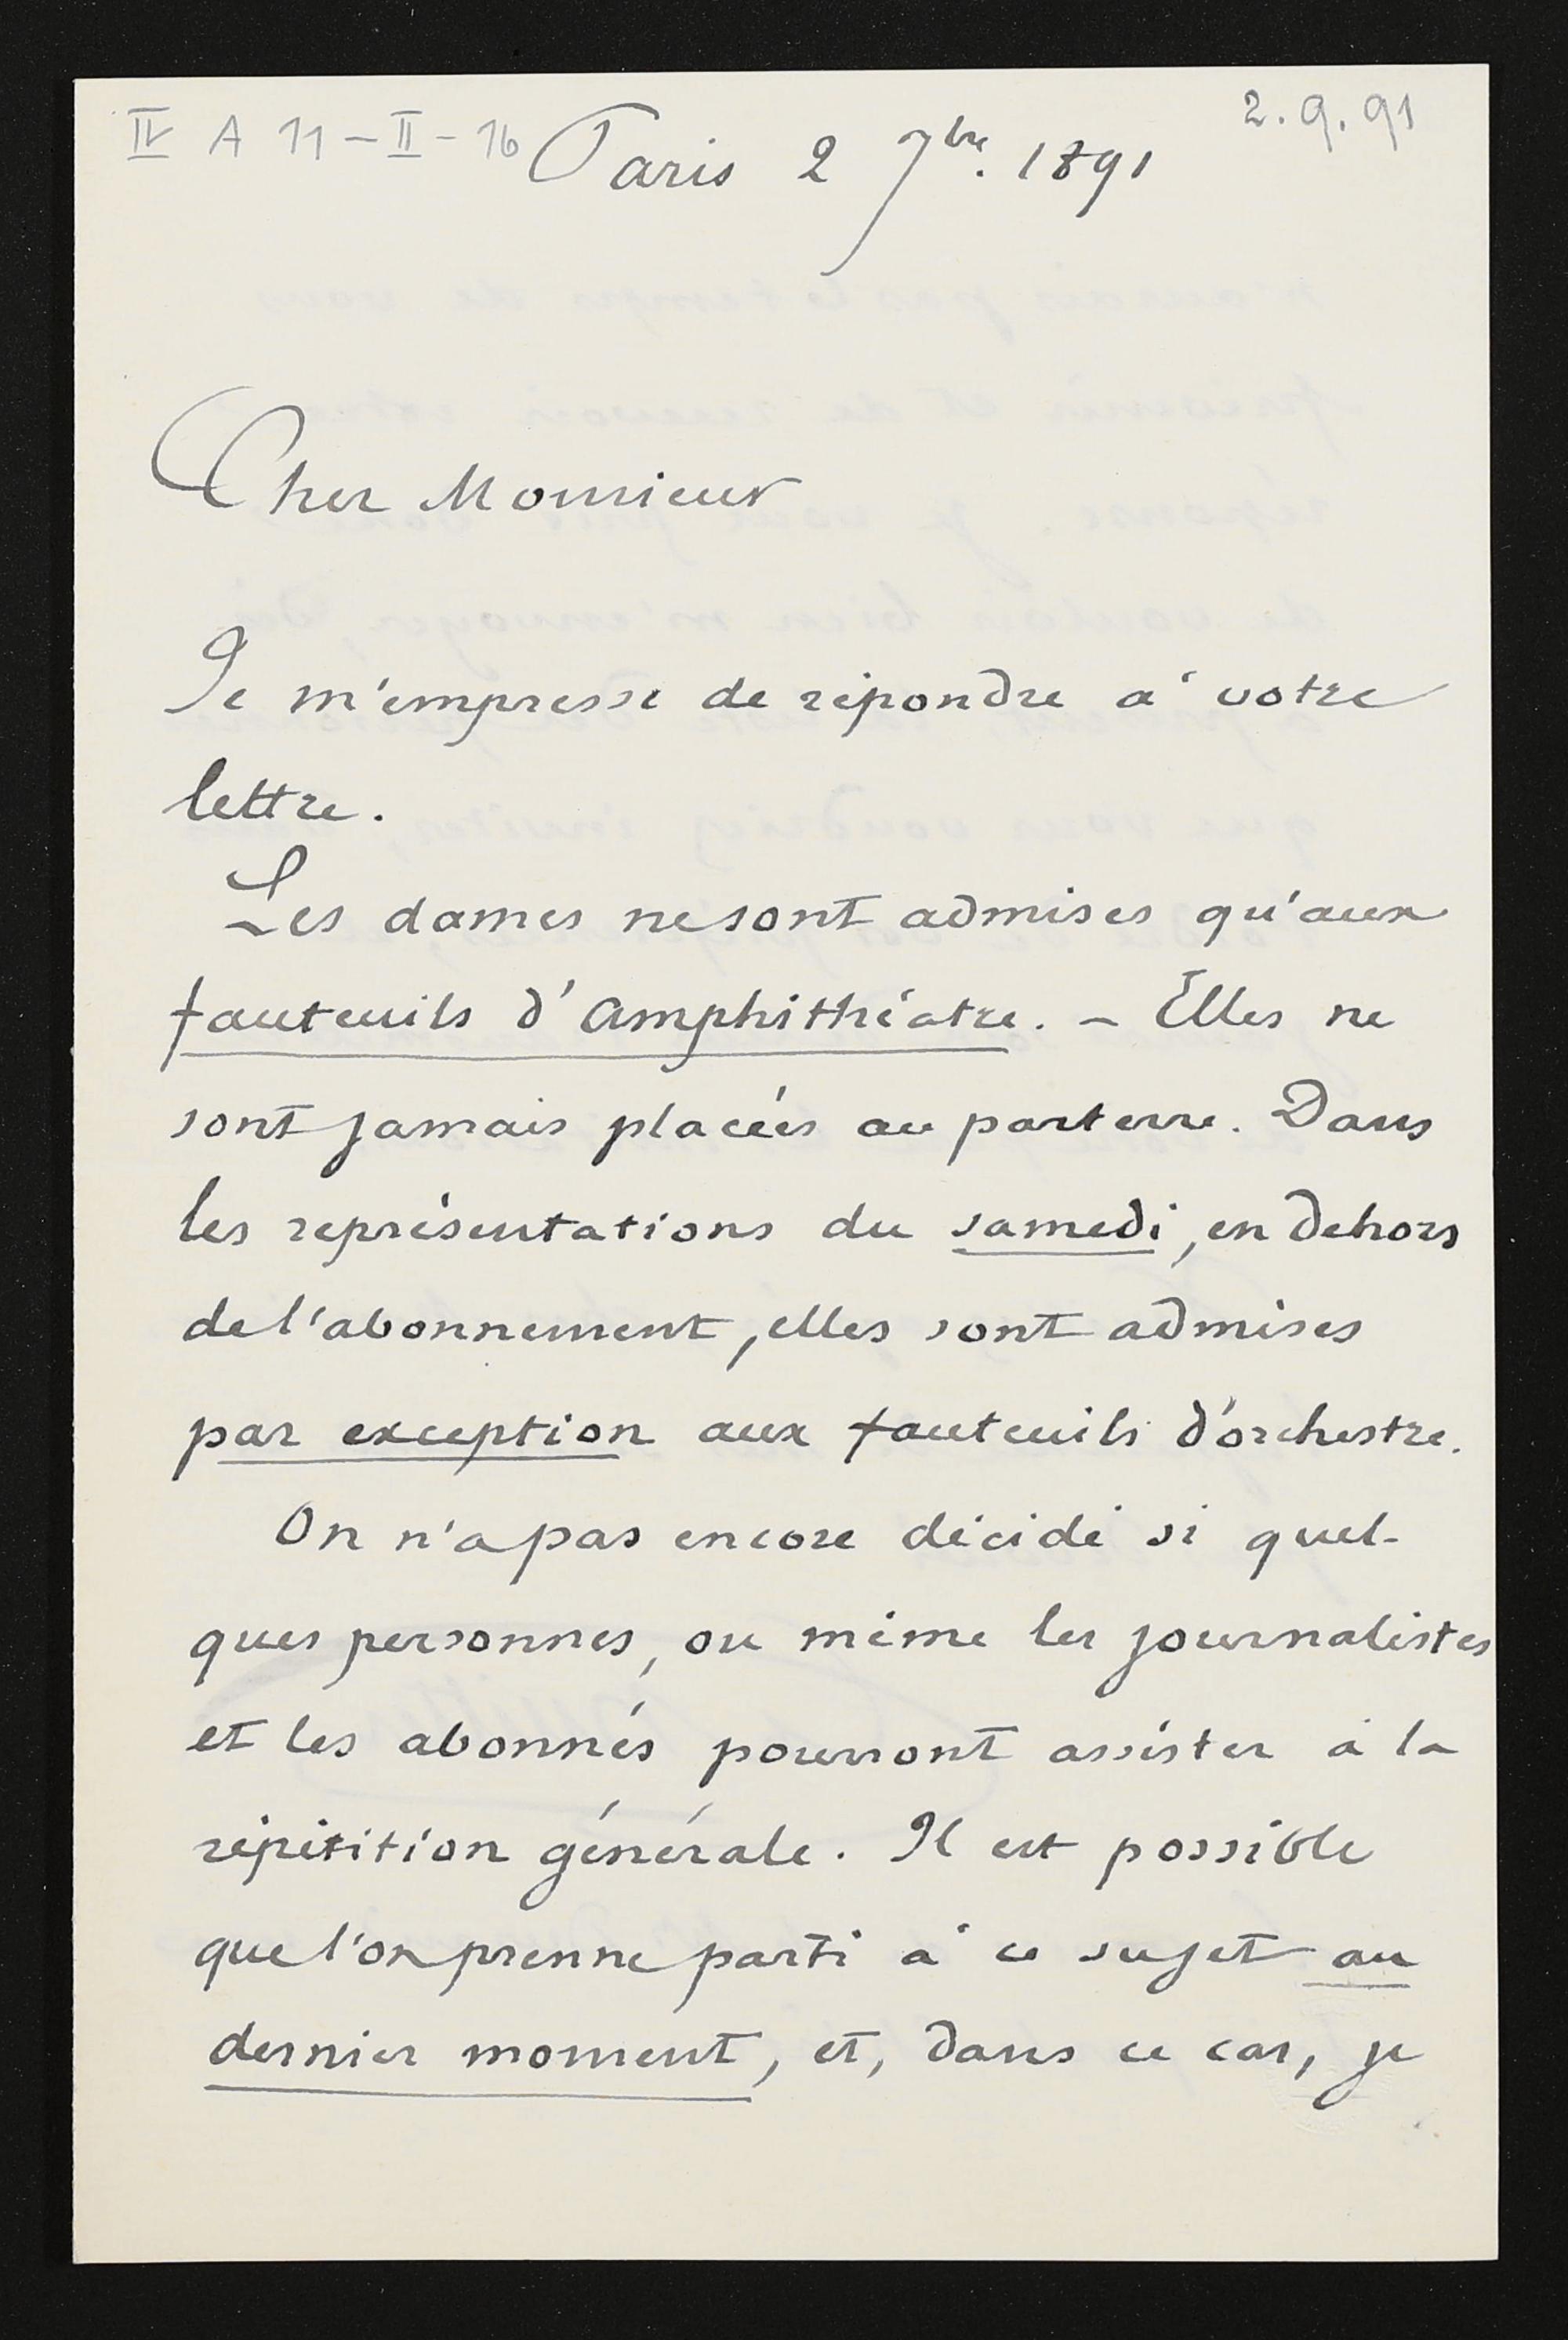 IV A 11-II-16
2.9.91
Paris 2 7bre. 1891
Cher Monsieur
Je m'empresse de répondre à votre
lettre.
Les dames ne sont admises qu'aux
fauteuils d'Amphithéatre. - Elles ne
sont jamais placées au parterre. Dans
les représentations du samedi, en dehors
de l'abonnement, elles sont admises
par exception aux fauteuils d'orchestre.
On n'a pas encore décidé si quel-
ques personnes, ou même les journalistes
et les abonnés pourront assister à la
répétition générale. Il est possible
que l'on prenne parti à ce sujet au
dernier moment, et, dans ce cas, je